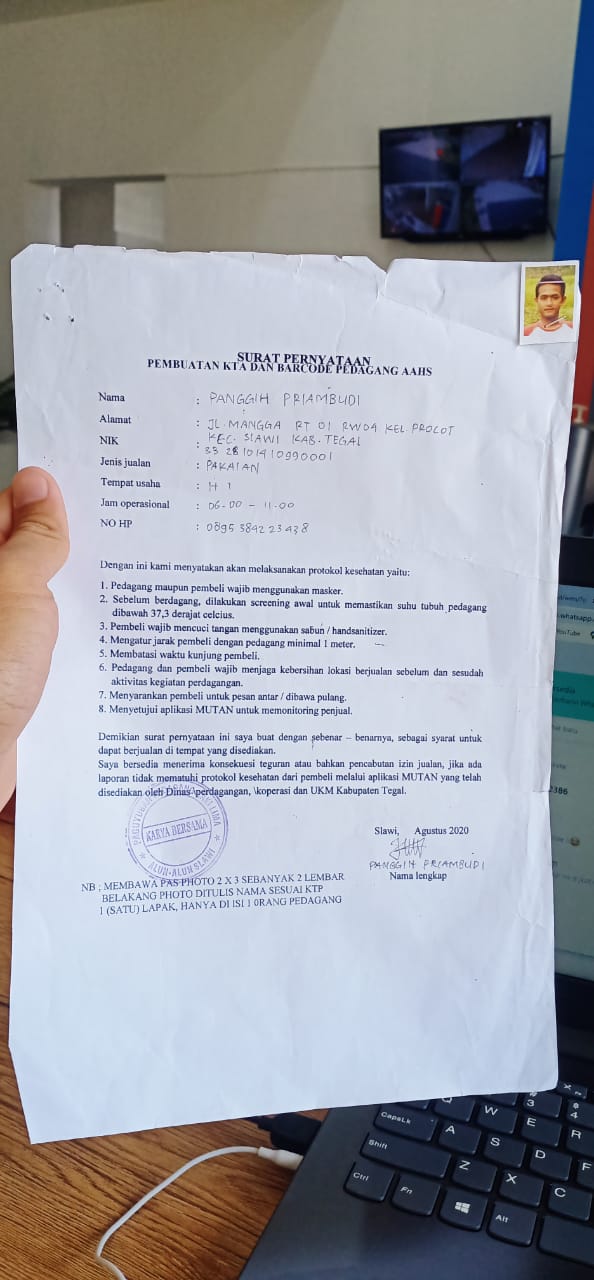 SURAT PERNYATAAN
PEMBUATAN KTA DAN BARCODE PEDAGANG AAHS
Nama : PANGGIH PRIAMBUDI
Alamat : JL. MANGGA RT 01 RW04 KEL. PROCOT
KEC. SLAWI KAB. TEGAL
NIK : 33 28 10141099 0001
Jenis jualan : PAKAIAN
Tempat usaha : H 1
Jam operasional : 06.00 - 11.00
NO HP : 0895 3842 23438
Dengan ini kami menyatakan akan melaksanakan protokol kesehatan yaitu:
1. Pedagang maupun pembeli wajib menggunakan masker.
2. Sebelum berdagang, dilakukan screening awal untuk memastikan suhu tubuh pedagang
dibawah 37,3 derajat celcius.
3. Pembeli wajib mencuci tangan menggunakan sabun / handsanitizer.
4. Mengatur jarak pembeli dengan pedagang minimal 1 meter.
5. Membatasi waktu kunjung pembeli.
6. Pedagang dan pembeli wajib menjaga kebersihan lokasi berjualan sebelum dan sesudah
aktivitas kegiatan perdagangan.
7. Menyarankan pembeli untuk pesan antar / dibawa pulang.
8. Menyetujui aplikasi MUTAN untuk memonitoring penjual.
Demikian surat pernyataan ini saya buat dengan sebenar – benarnya, sebagai syarat untuk
dapat berjualan di tempat yang disediakan.
Saya bersedia menerima konsekuesi teguran atau bahkan pencabutan izin jualan, jika ada
laporan tidak mematuhi protokol kesehatan dari pembeli melalui aplikasi MUTAN yang telah
disediakan oleh Dinas perdagangan, \koperasi dan UKM Kabupaten Tegal.
KARYA BERSAMA
ALUN-ALUN SLAWI
Slawi, Agustus 2020
PANGGIH PRIAMBUDI
Nama lengkap
NB ; MEMBAWA PAS PHOTO 2 X 3 SEBANYAK 2 LEMBAR
BELAKANG PHOTO DITULIS NAMA SESUAI KTP
1 (SATU) LAPAK, HANYA DI ISI 1 0RANG PEDAGANG
YouTube
2386
CapsLk
Shift
Ctrl
Fn
Alt
Q
W
E
R
A
S
D
F
Z
X
C
3
4